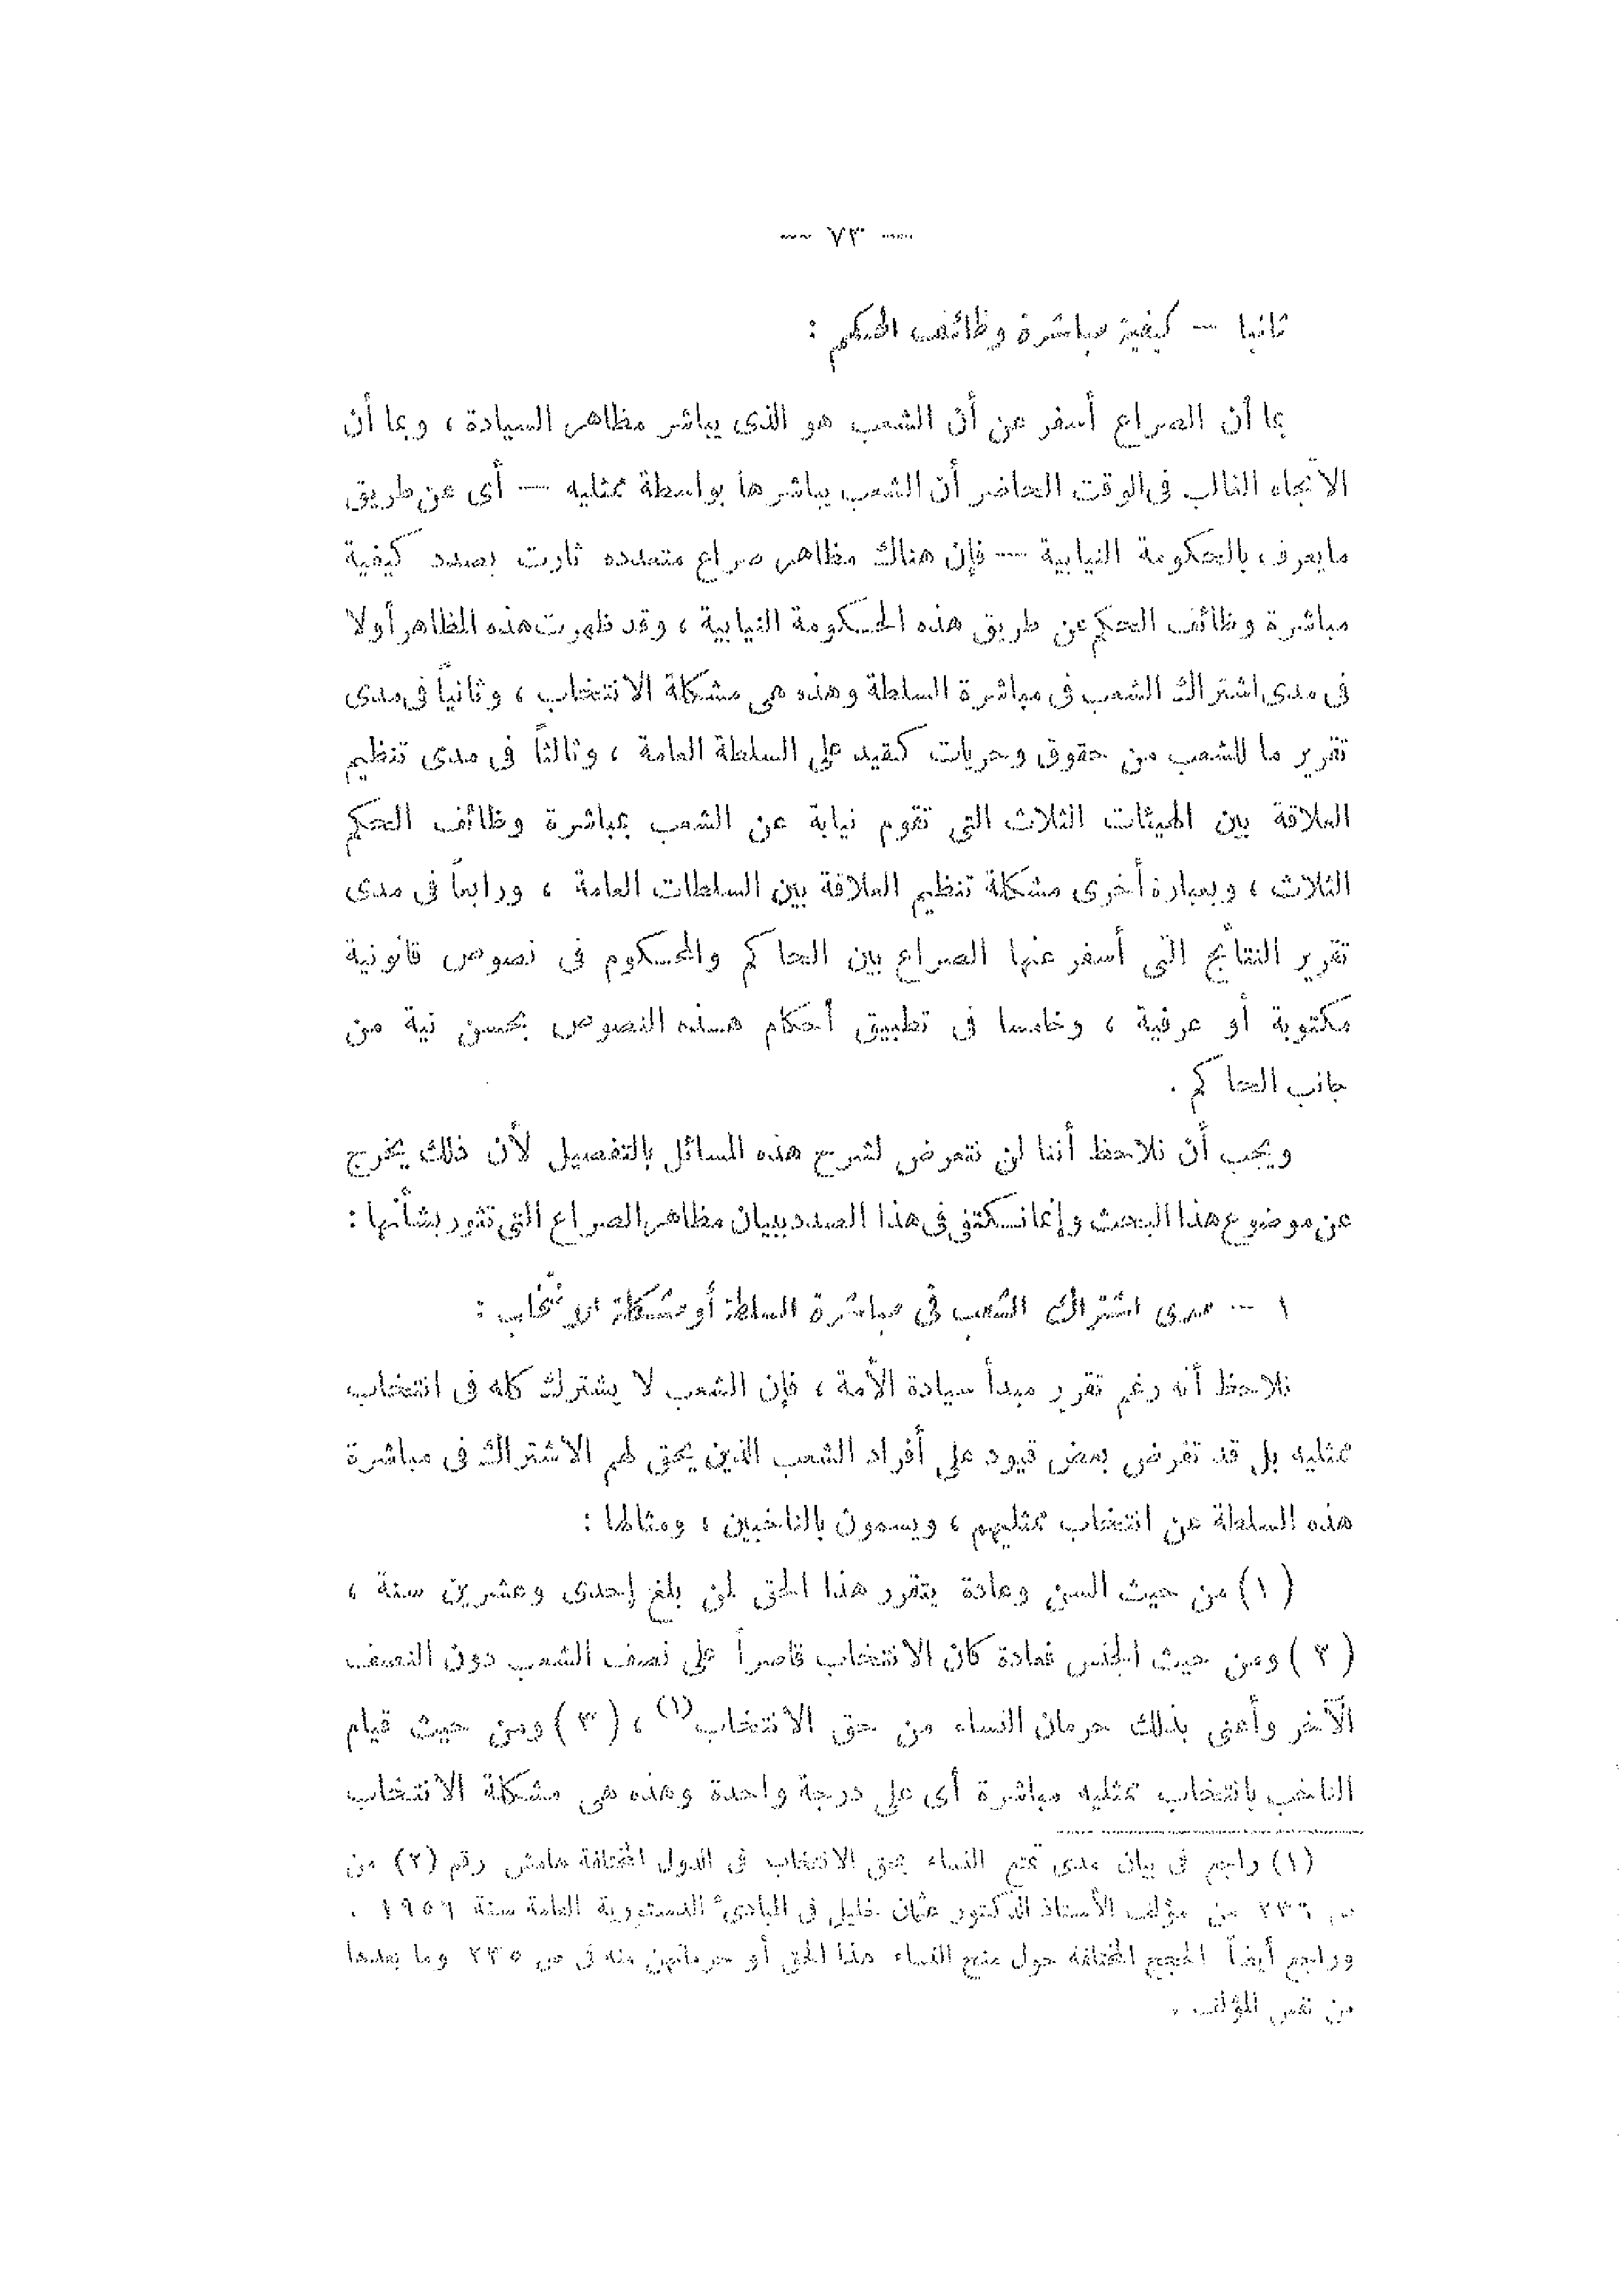 — ٧٣ —
ثانيا — كيفية مباشرة وظائف الحكم :
بما أن الصراع أسفر عن أن الشعب هو الذى يباشر مظاهر السيادة ، وبما أن
الاتجاه الغالب فى الوقت الحاضر أن الشعب يباشرها بواسطة ممثليه — أى عن طريق
مايعرف بالحكومة النيابية — فإن هناك مظاهر صراع متعدده ثارت بصدد كيفية
مباشرة وظائف الحكم عن طريق هذه الحكومة النيابية ، وقد ظهرت هذه المظاهر أولا
فى مدى اشتراك الشعب فى مباشرة السلطة وهذه هى مشكلة الانتخاب ، وثانياً فى مدى
تقرير ما للشعب من حقوق وحريات كقيد على السلطة العامة ، وثالثاً فى مدى تنظيم
العلاقة بين الهيئات الثلاث التى تقوم نيابة عن الشعب بمباشرة وظائف الحكم
الثلاث ، وبعبارة أخرى مشكلة تنظيم العلاقة بين السلطات العامة ، ورابعاً فى مدى
تقرير النتائج التى أسفر عنها الصراع بين الحاكم والمحكوم فى نصوص قانونية
مكتوبة أو عرفية ، وخامسا فى تطبيق أحكام هذه النصوص بحسن نية من
جانب الحاكم .
ويجب أن نلاحظ أننا لن نتعرض لشرح هذه المسائل بالتفصيل لأن ذلك يخرج
عن موضوع هذا البحث وإنما نكتفى فى هذا الصدد ببيان مظاهر الصراع التى تثور بشأنها :
١ — مدى اشتراك الشعب فى مباشرة السلطة أو مشكلة الانتخاب :
نلاحظ أنه رغم تقرير مبدأ سيادة الأمة ، فإن الشعب لا يشترك كله فى انتخاب
ممثليه بل قد تفرض بعض قيود على أفراد الشعب الذين يحق لهم الاشتراك فى مباشرة
هذه السلطة عن انتخاب ممثليهم ، ويسمون بالناخبين ، ومثالها :
( ١ ) من حيث السن وعادة يتقرر هذا الحق لمن بلغ إحدى وعشرين سنة ،
( ٢ ) ومن حيث الجنس فعادة كان الانتخاب قاصراً على نصف الشعب دون النصف
الآخر وأعنى بذلك حرمان النساء من حق الانتخاب (١) ، ( ٣ ) ومن حيث قيام
الناخب بانتخاب ممثليه مباشرة أى على درجة واحدة وهذه هى مشكلة الانتخاب
(١) راجع فى بيان مدى تمتع النساء بحق الانتخاب فى الدول المختلفة هامش رقم (٢) من
ص ٢٣٦ من مؤلف الأستاذ الدكتور عثمان خليل فى المبادئ الدستورية العامة سنة ١٩٥٦ .
وراجع أيضاً الحجج المختلفة حول منح النساء هذا الحق أو حرمانهن منه فى ص ٢٣٥ وما بعدها
من نفس المؤلف .